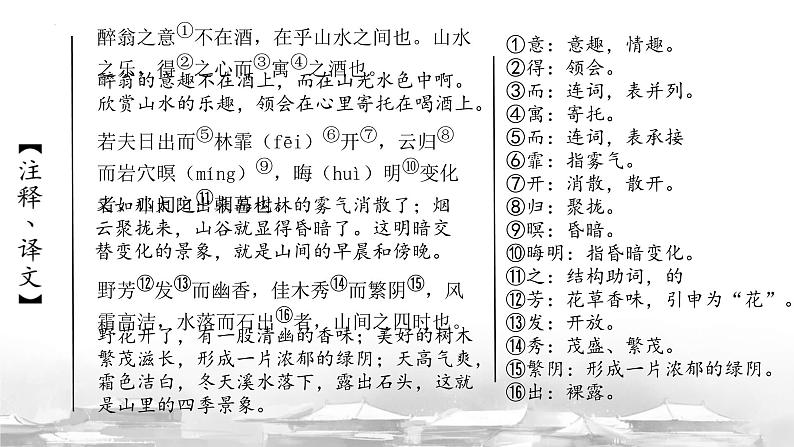 【注释、译文】
醉翁之意①不在酒，在乎山水之间也。山水
之乐，得②之心而③寓④之酒也。
醉翁的意趣不在酒上，而在山光水色中啊。
欣赏山水的乐趣，领会在心里寄托在喝酒上。
若夫日出而⑤林霏（fēi）⑥开⑦，云归⑧
而岩穴暝（míng）⑨，晦（huì）明⑩变化
者，山间之⑪朝暮也。
若如那太阳出来树林的雾气消散了；烟
云聚拢来，山谷就显得昏暗了。这明暗交
替变化的景象，就是山间的早晨和傍晚。
野芳⑫发⑬而幽香，佳木秀⑭而繁阴⑮，风
霜高洁，水落而石出⑯者，山间之四时也。
野花开了，有一股清幽的香味；美好的树木
繁茂滋长，形成一片浓郁的绿阴；天高气爽，
霜色洁白，冬天溪水落下，露出石头，这就
是山里的四季景象。
①意：意趣，情趣。
②得：领会。
③而：连词，表并列。
④寓：寄托。
⑤而：连词，表承接
⑥霏：指雾气。
⑦开：消散，散开。
⑧归：聚拢。
⑨暝：昏暗。
⑩晦明：指昏暗变化。
⑪之：结构助词，的
⑫芳：花草香味，引申为“花”。
⑬发：开放。
⑭秀：茂盛、繁茂。
⑮繁阴：形成一片浓郁的绿阴。
⑯出：裸露。